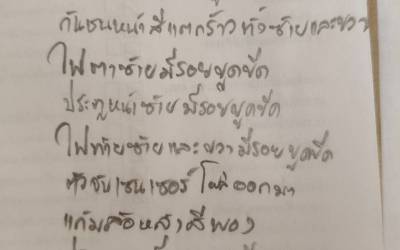 กันชนหน้า สีแตกร้าว ทั้งซ้ายและขวา
ไฟตาซ้ายมีรอยขูดขีด
ประตูหน้าซ้ายมีรอยขูดขีด
ไฟท้ายซ้ายและขวามีรอยขูดขีด
ตัวจับเซนเซอร์ โผล่ออกมา
แก้มล้อหลังสีพอง